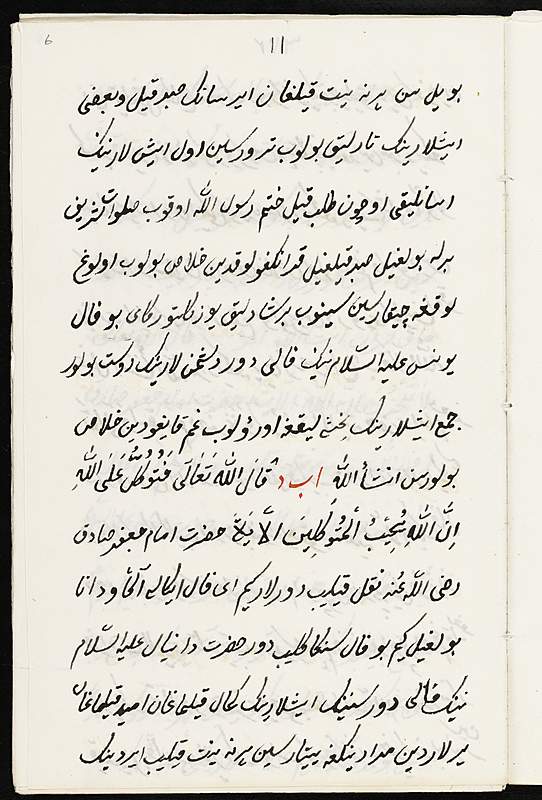 6
11
بو یل سن هر نه نیت قیلغان ایرسانک صبر قیل و بعضی
ایشلارینک تارلیق بولوب ترورسین اول ایش لارنینک
اسانلیقی اوچون طلب قیل ختم رسول الله اوقوب صلوات شریف
برله بولغیل صبر قیلغیل قرانکغولوقدین خلاص بولوب اولوغ
لوقغه چیقارسین سینوب بر شادلیق یوز کلتورکای بو فال
یونس علیه السلام نینک فالی دور دشمن لارینک دوست بولور
جمع ایشلارینک یخشی لیقغه اورولوب غم قایغودین خلاص
بولورسن انشأ الله ا ب د قَالَ اللهُ تَعَالَی فَتَوَکَّلْ عَلَی اللهِ
اِنَّ اللهَ یُحِبُّ الْمُتَوَکِّلِینَ الآیَة حضرت امام جعفر صادق
رضی الله عنه نقل قیلیب دورلار کیم ای فال ایکاسی آکاه و دانا
بولغیل کیم بو فال سنکا کلیب دور حضرت دانیال علیه السلام
نینک فالی دور سنینک ایشلارینک کمال قیلماغان امید قیلماغان
یرلاردین مرادینکغه ییتارسین هر نه نیت قیلیب ایردینک